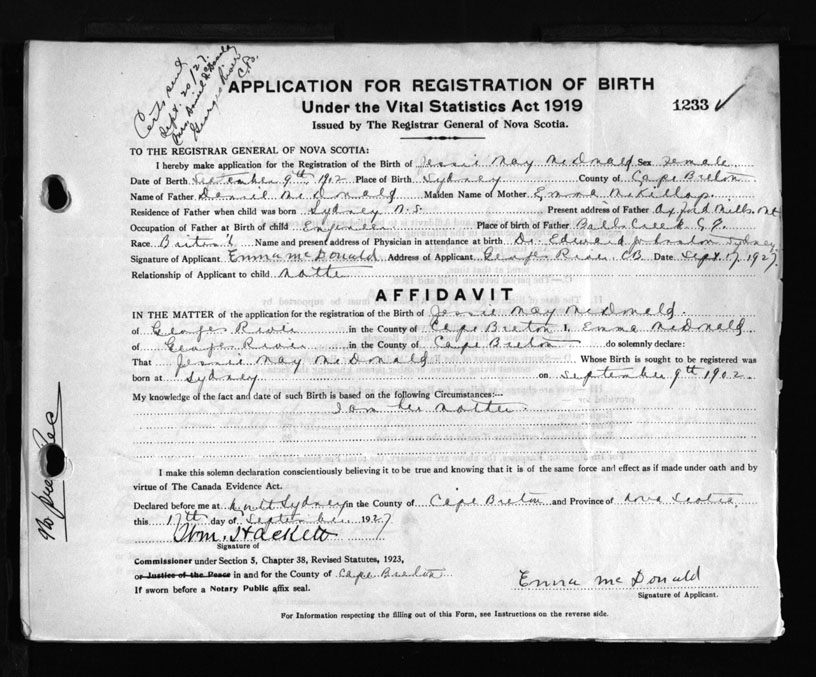 Certs sent
Sept. 20/27.
Mrs. Daniel McDonald
Georges River
C.B.
APPLICATION FOR REGISTRATION OF BIRTH
Under the Vital Statistics Act 1919
1233 ✓
Issued by The Registrar General of Nova Scotia.
TO THE REGISTRAR GENERAL OF NOVA SCOTIA:
I hereby make application for the Registration of the Birth of Jessie May McDonald Sex Female
Date of Berth September 9th, 1902 Place of Birth Sydney County of Cape Breton
Name of Father Daniel McDonald Maiden Name of Mother Emma McKillop
Residence of Father when child was born Sydney N.S. Present address of Father Oxford Mills
Occupation of Father at Birth of child Engineer Place of birth of Father Balls Creek C.B.
Race British Name and present address of Physician in attendance at birth Dr. Edward Johnston Sydney
Signature of Applicant Emma McDonald Address of Applicant Georges River C.B. Date Sept. 17, 1927.
Relationship of Applicant to child Mother
AFFIDAVIT
IN THE MATTER of the application for the registration of the Birth of Jessie May McDonald.
of Georges River in the County of Cape Breton I, Emma McDonald
of Georges River in the County of Cape Breton do solemnly declare:
That Jessie May McDonald Whose Birth is sought to be registered was
born at Sydney on September 9th 1902.
My knowledge of the fact and date of such Birth is based on the following Circumstances:—
I am her Mother.
I make this solemn declaration conscientiously believing it to be true and knowing that it is of the same force and effect as if made under oath and by
virtue of The Canada Evidence Act.
Declared before me at North Sydney in the County of Cape Breton and Province of Nova Scotia
this 17th day of September 1927
Wm. Hackett
Signature of
Commissioner under Section 5, Chapter 38, Revised Statutes, 1923,
or Justice of the Peace in and for the County of Cape Breton
If sworn before a Notary Public affix seal.
Emma McDonald
Signature of Applicant.
For Information respecting the filling out of this Form, see Instructions on the reverse side.
No prev Rec